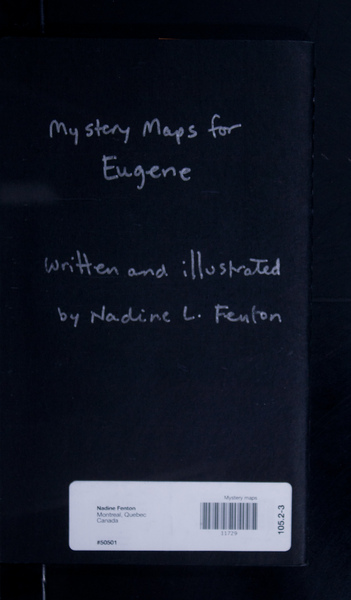 Mystery Maps for
Eugene
written and illustrated
by Nadine L. Fenton
Mystery maps
Nadine Fenton
Montreal, Quebec
Canada
#50501
21729
105.2-3